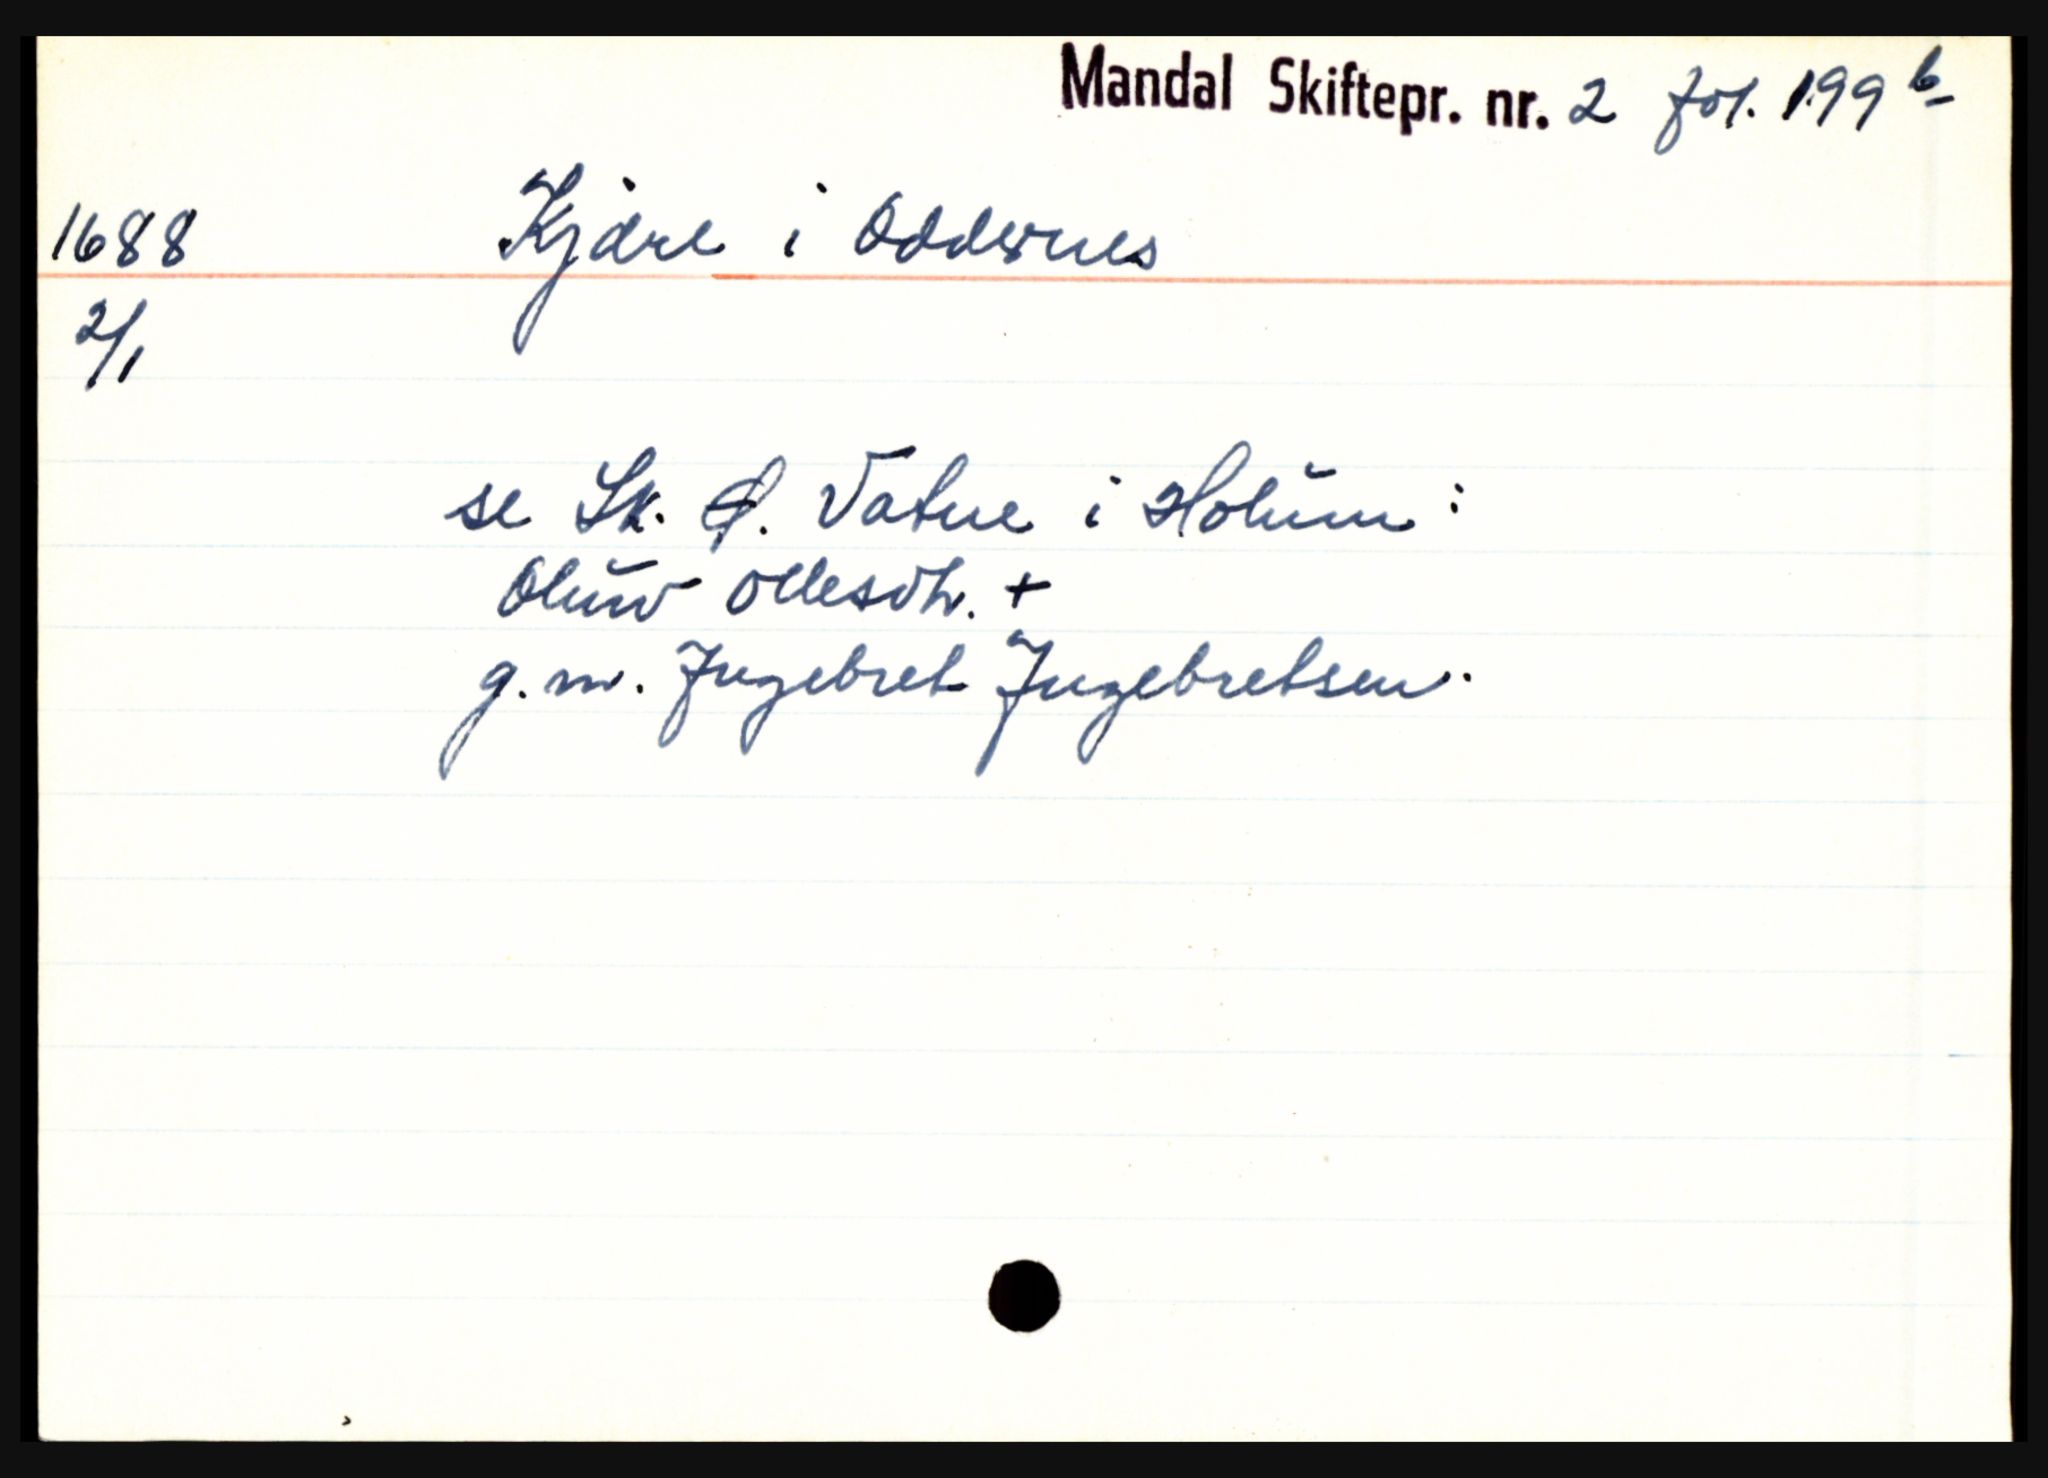 Mandal Skiftepr. nr. 2 fol. 199 b
1688 Kjære i Oddernes
2/1
se Sk. p. Vatne i Holum:
Oluw ollesdtr. +
g. m. Jngebret Jngebretsen.